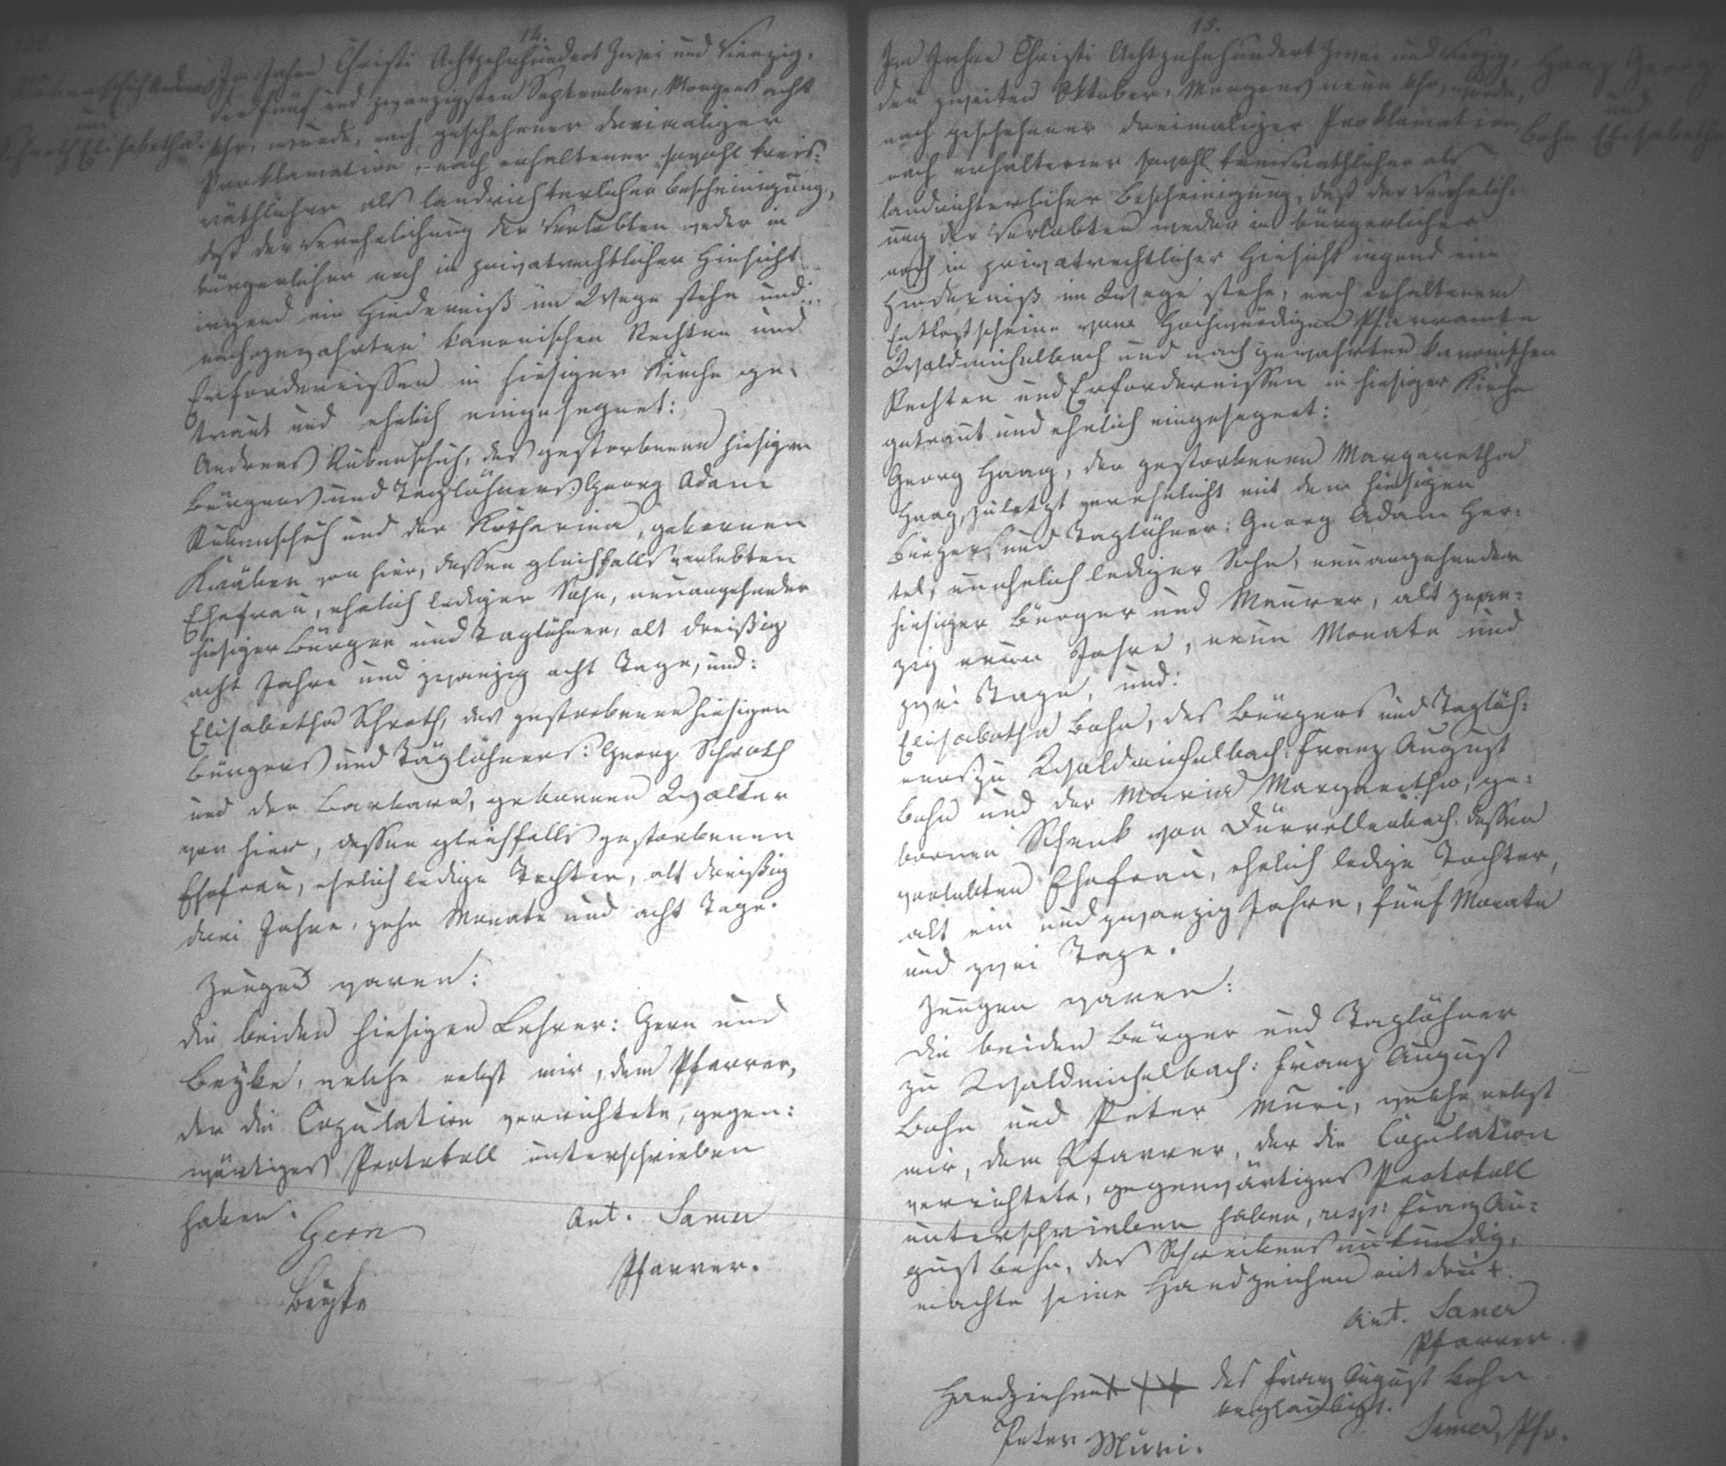 14.
Im Jahre Christi Achtzehnhundert Zwei und Vierzig,
den fünf und zwanzigsten September, Morgens acht
Uhr, wurde, nach geschehener dreimaliger
Proklamation, nach erhaltener sowohl kreis:
räthlicher als landrichterlicher Bescheinigung,
daß der Verehelichung der Verlobten weder in
bürgerlicher noch in privatrechtlicher Hinsicht
irgend ein Hinderniß im Wege stehe und
nachgewahrten kanonischen Rechten und
Erfordernissen in hiesiger Kirche ge:
traut und ehelich eingesegnet:
Andreas Rübenschuh, des gestorbenen hiesigen
Bürgers und Taglöhners: Georg Adam
Rübenschuh und der Katharina, gebornen
von hier, dessen gleichfalls verlebten
Ehefrau, ehelich lediger Sohn, neuangehender
hiesiger Bürger und Taglöhner, alt dreißig
acht Jahre und zwanzig acht Tage, und:
Elisabetha Schroth, des gestorbenen hiesigen
Bürgers und Taglöhners: Georg Schroth
und der Barbara, gebornen Walter
von hier, dessen gleichfalls gestorbenen
Ehefrau, ehelich ledige Tochter, alt dreißig
drei Jahre, zehn Monate und acht Tage.
Zeugen waren:
die beiden hiesigen Lehrer: Gern und
Beyke, welche nebst mir, dem Pfarrer,
der die Copulation verrichtete, gegen:
wärtiges Protokoll unterschrieben
haben:
Gern
Ant. Sauer
Beyke
Pfarrer.
15.
Haag Georg
und
Bohn Elisabetha
Im Jahre Christi Achtzehnhundert Zwei und Vierzig,
den zweiten Oktober, Morgens neun Uhr, wurde,
nach geschehener dreimaliger Proklamation,
nach erhaltener sowohl kreisräthlicher als
landrichterlicher Bescheinigung, daß der Verehelich:
ung der Verlobten weder in bürgerlicher
noch in privatrechtlicher Hinsicht irgend ein
Hinderniß im Wege stehe, nach erhaltenem
Entlaßscheine vom Hochwürdigen Pfarramte
Waldmichelbach und nach gewahrten kanonischen
Rechten und Erfordernissen in hiesiger Kirche
getraut und ehelich eingesegnet:
Georg Haag, der gestorbenen Margaretha
Haag, zuletzt verehelicht mit dem hiesigen
Bürger und Taglöhner: Georg Adam Her:
tel, unehelich lediger Sohn, neuangehender
hiesiger Bürger und Maurer, alt zwan:
zig neun Jahre, neun Monate und
zwei Tage, und:
Elisabetha Bohn, des Bürgers und Taglöh:
ners zu Waldmichelbach: Franz August
Bohn und der Maria Margaretha, ge:
bornen Schenk von Dürrellenbach, dessen
verlebten Ehefrau, ehelich ledige Tochter,
alt ein und zwanzig Jahre, fünf Monate
und zwei Tage.
Zeugen waren:
die beiden Bürger und Taglöhner
zu Waldmichelbach: Franz August
Bohn und Peter Muri, welche nebst
mir, dem Pfarrer, der die Copulation
verrichtete, gegenwärtiges Protokoll
unterschrieben haben, resp: Franz Au:
gust Bohn, des Schreibens unkundig,
machte seine Handzeichen mit drei +.
Ant. Sauer
Pfarrer.
Handzeichen + + + des Franz August Bohn
beglaubigt.
Sauer, Pfr.
Peter Muri.